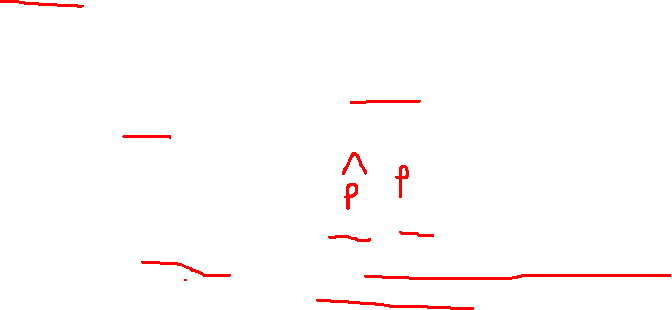 p̂ p